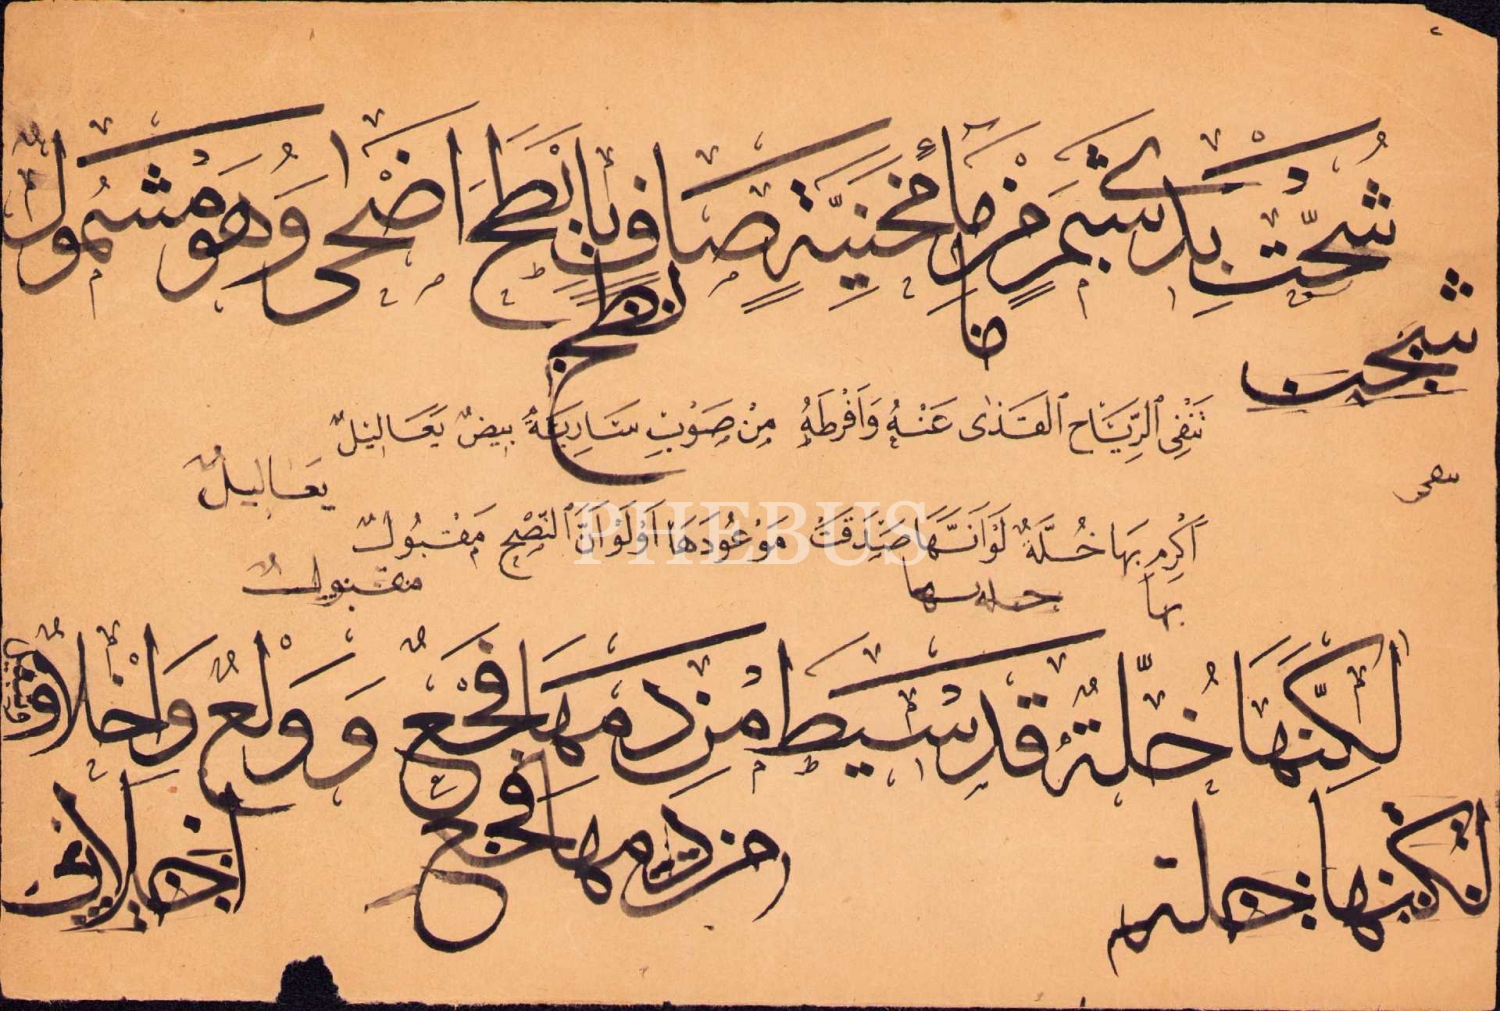 شُجَّتْ بِذِى شَبَمٍ مِنْ مَاءِ مَحْنِيَّةٍ صَافٍ بِاَبْطَحَ اَضْحٰى وَهُوَ مَشْمُولٌ
شجت ما بطح
تَنْفِى ٱلرِّيَاحُ ٱلْقَذٰى عَنْهُ وَاَفْرَطَهُ مِنْ صَوْبِ سَارِيَةٍ بِيضٌ يَعَالِيلٌ
يَعَاليلٌ
اَكْرِم بِهَا خُلَّةً لَوْ اَنَّهَا صَدَقَتْ مَوْعُودَهَا اَوْ لَوْ اَنَّ ٱلنُّصْحَ مَقْبُولٌ
بها مقبول
PHEBUS
لٰكِنَّهَا خُلَّةٌ قَدْ سِيطَ مِنْ دَمِهَا فَجْعٌ وَوَلْعٌ وَاِخْلَافٌ وتبديل
لكنها خلة من دمها فجع اخلاف